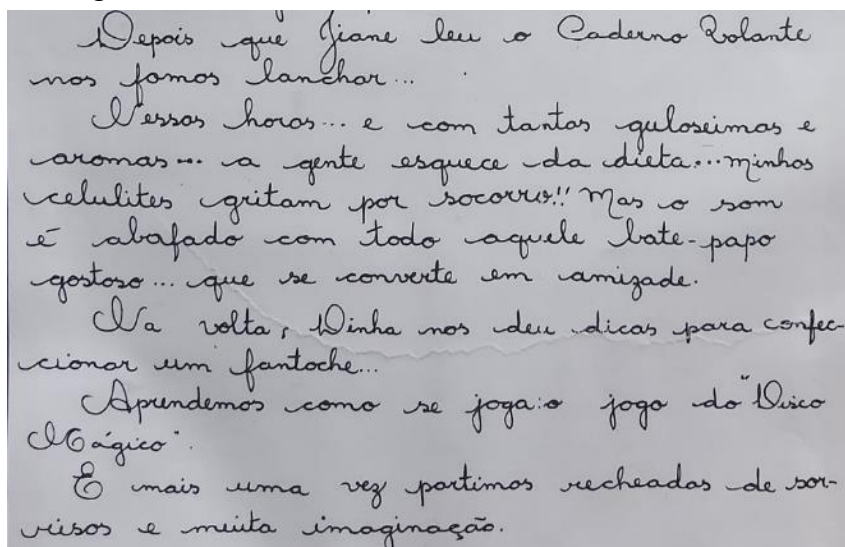 Depois que Jiane leu o Caderno Volante
nos fomos lanchar...
Nessas horas... e com tantas guloseimas e
aromas... a gente esquece da dieta... minhas
celulites gritam por socorro!! Mas o som
é abafado com todo aquele bate-papo
gostoso... que se converte em amizade.
Na volta, Dinha nos deu dicas para confec-
cionar um fantoche...
Aprendemos como se joga: o jogo do "Disco
Mágico".
E mais uma vez partimos recheadas de sor-
risos e muita imaginação.